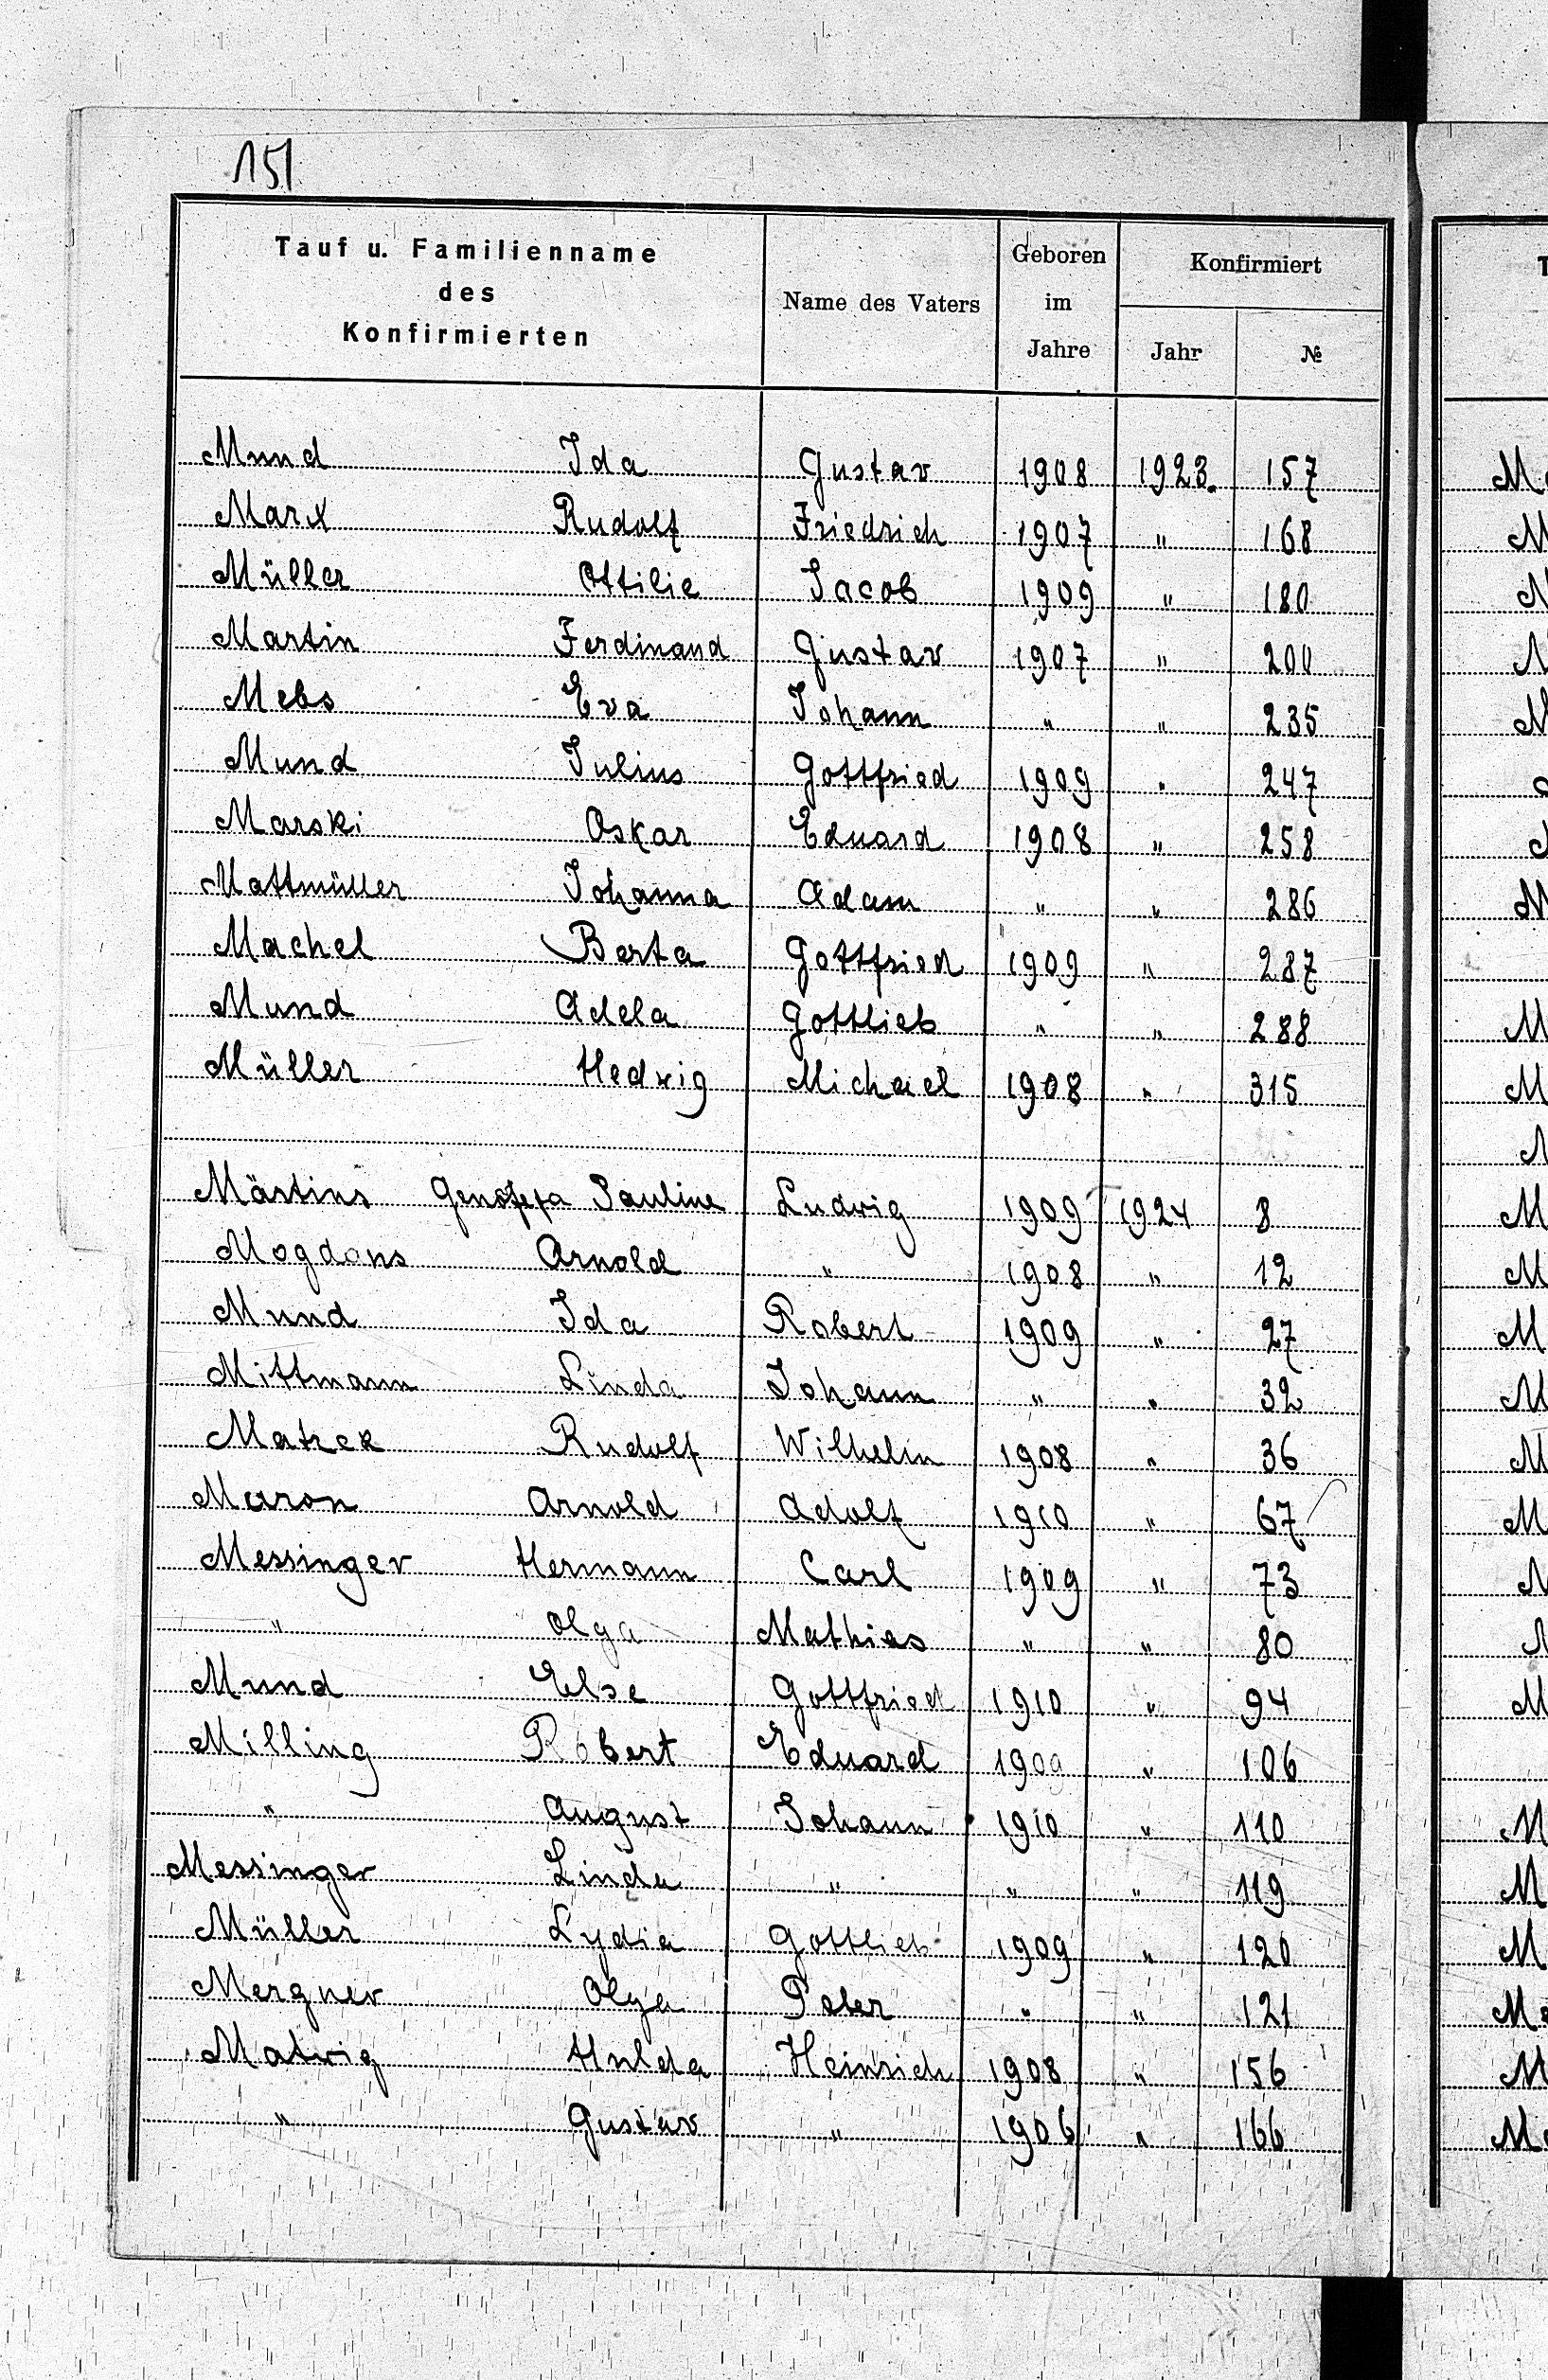 151
Tauf u. Familienname
des
Konfirmierten
Name des Vaters
Geboren
im
Jahre
Konfirmiert
Jahr
№
Mund Ida Gustav 1908 1923. 157
Marx Rudolf Friedrich 1907 " 168
Müller Ottilie Jacob 1909 " 180
Martin Ferdinand Gustav 1907 " 200
Mebs Eva Johann " " 235
Mund Julius Gottfried 1909 " 247
Marski Oskar Eduard 1908 " 258
Mattmüller Johanna Adam " " 286
Machel Berta Gottfried 1909 " 287
Mund Adela Gottlieb " " 288
Müller Hedwig Michael 1908 " 315
Märtins Genofefa Pauline Ludwig 1909 1924 8
Mogdans Arnold " 1908 " 12
Mund Ida Robert 1909 " 27
Mittmann Linda Johann " " 32
Matzek Rudolf Wilhelm 1908 " 36
Maron Arnold Adolf 1910 " 67
Messinger Hermann Carl 1909 " 73
" Olga Mathias " " 80
Mund Else Gottfried 1910 " 94
Milling Robert Eduard 1909 " 106
" August Johann 1910 " 110
Messinger Linda " " " 119
Müller Lydia Gottlieb 1909 " 120
Mergner Olga Peter " " 121
Matwig Hulda Heinrich 1908 " 156
" Gustav " 1906 " 166